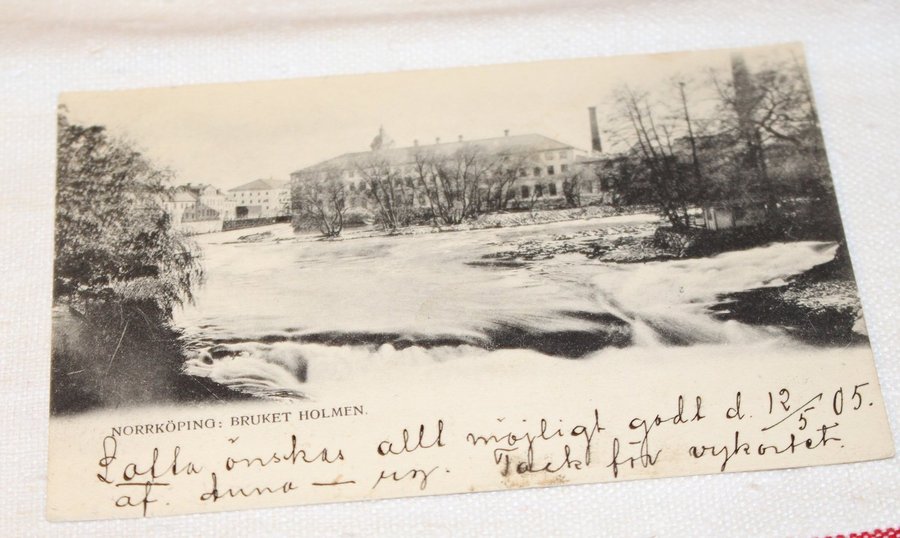 NORRKÖPING: BRUKET HOLMEN.
Lotta önskas allt möjligt godt d. 12/5 05.
af. Anna — Tack för vykortet.